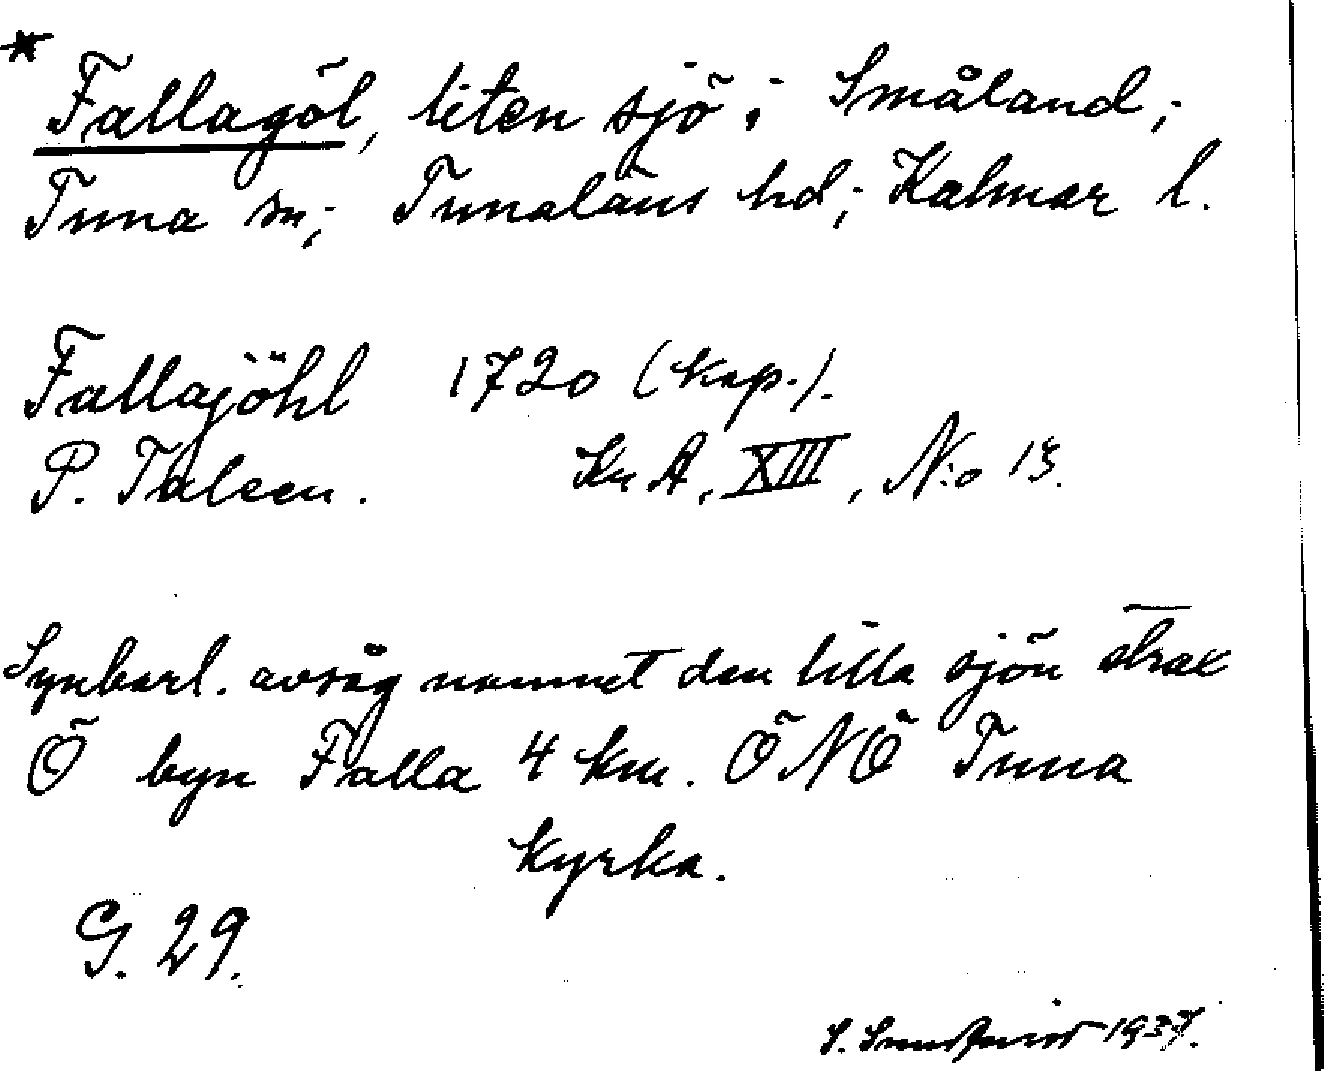 * Fallagöl, liten sjö i Småland;
Tuna sn; Tunaläns hd; Kalmar l.
Fallajöhl 1720 (kop.).
P. Tuleen. Kr A, XIII, N:o 13.
Synbarl. avsåg namnet den lilla sjön strax
Ö byn Falla 4 km. ÖNÖ Tuna
kyrka.
G. 29.
S. 1937.